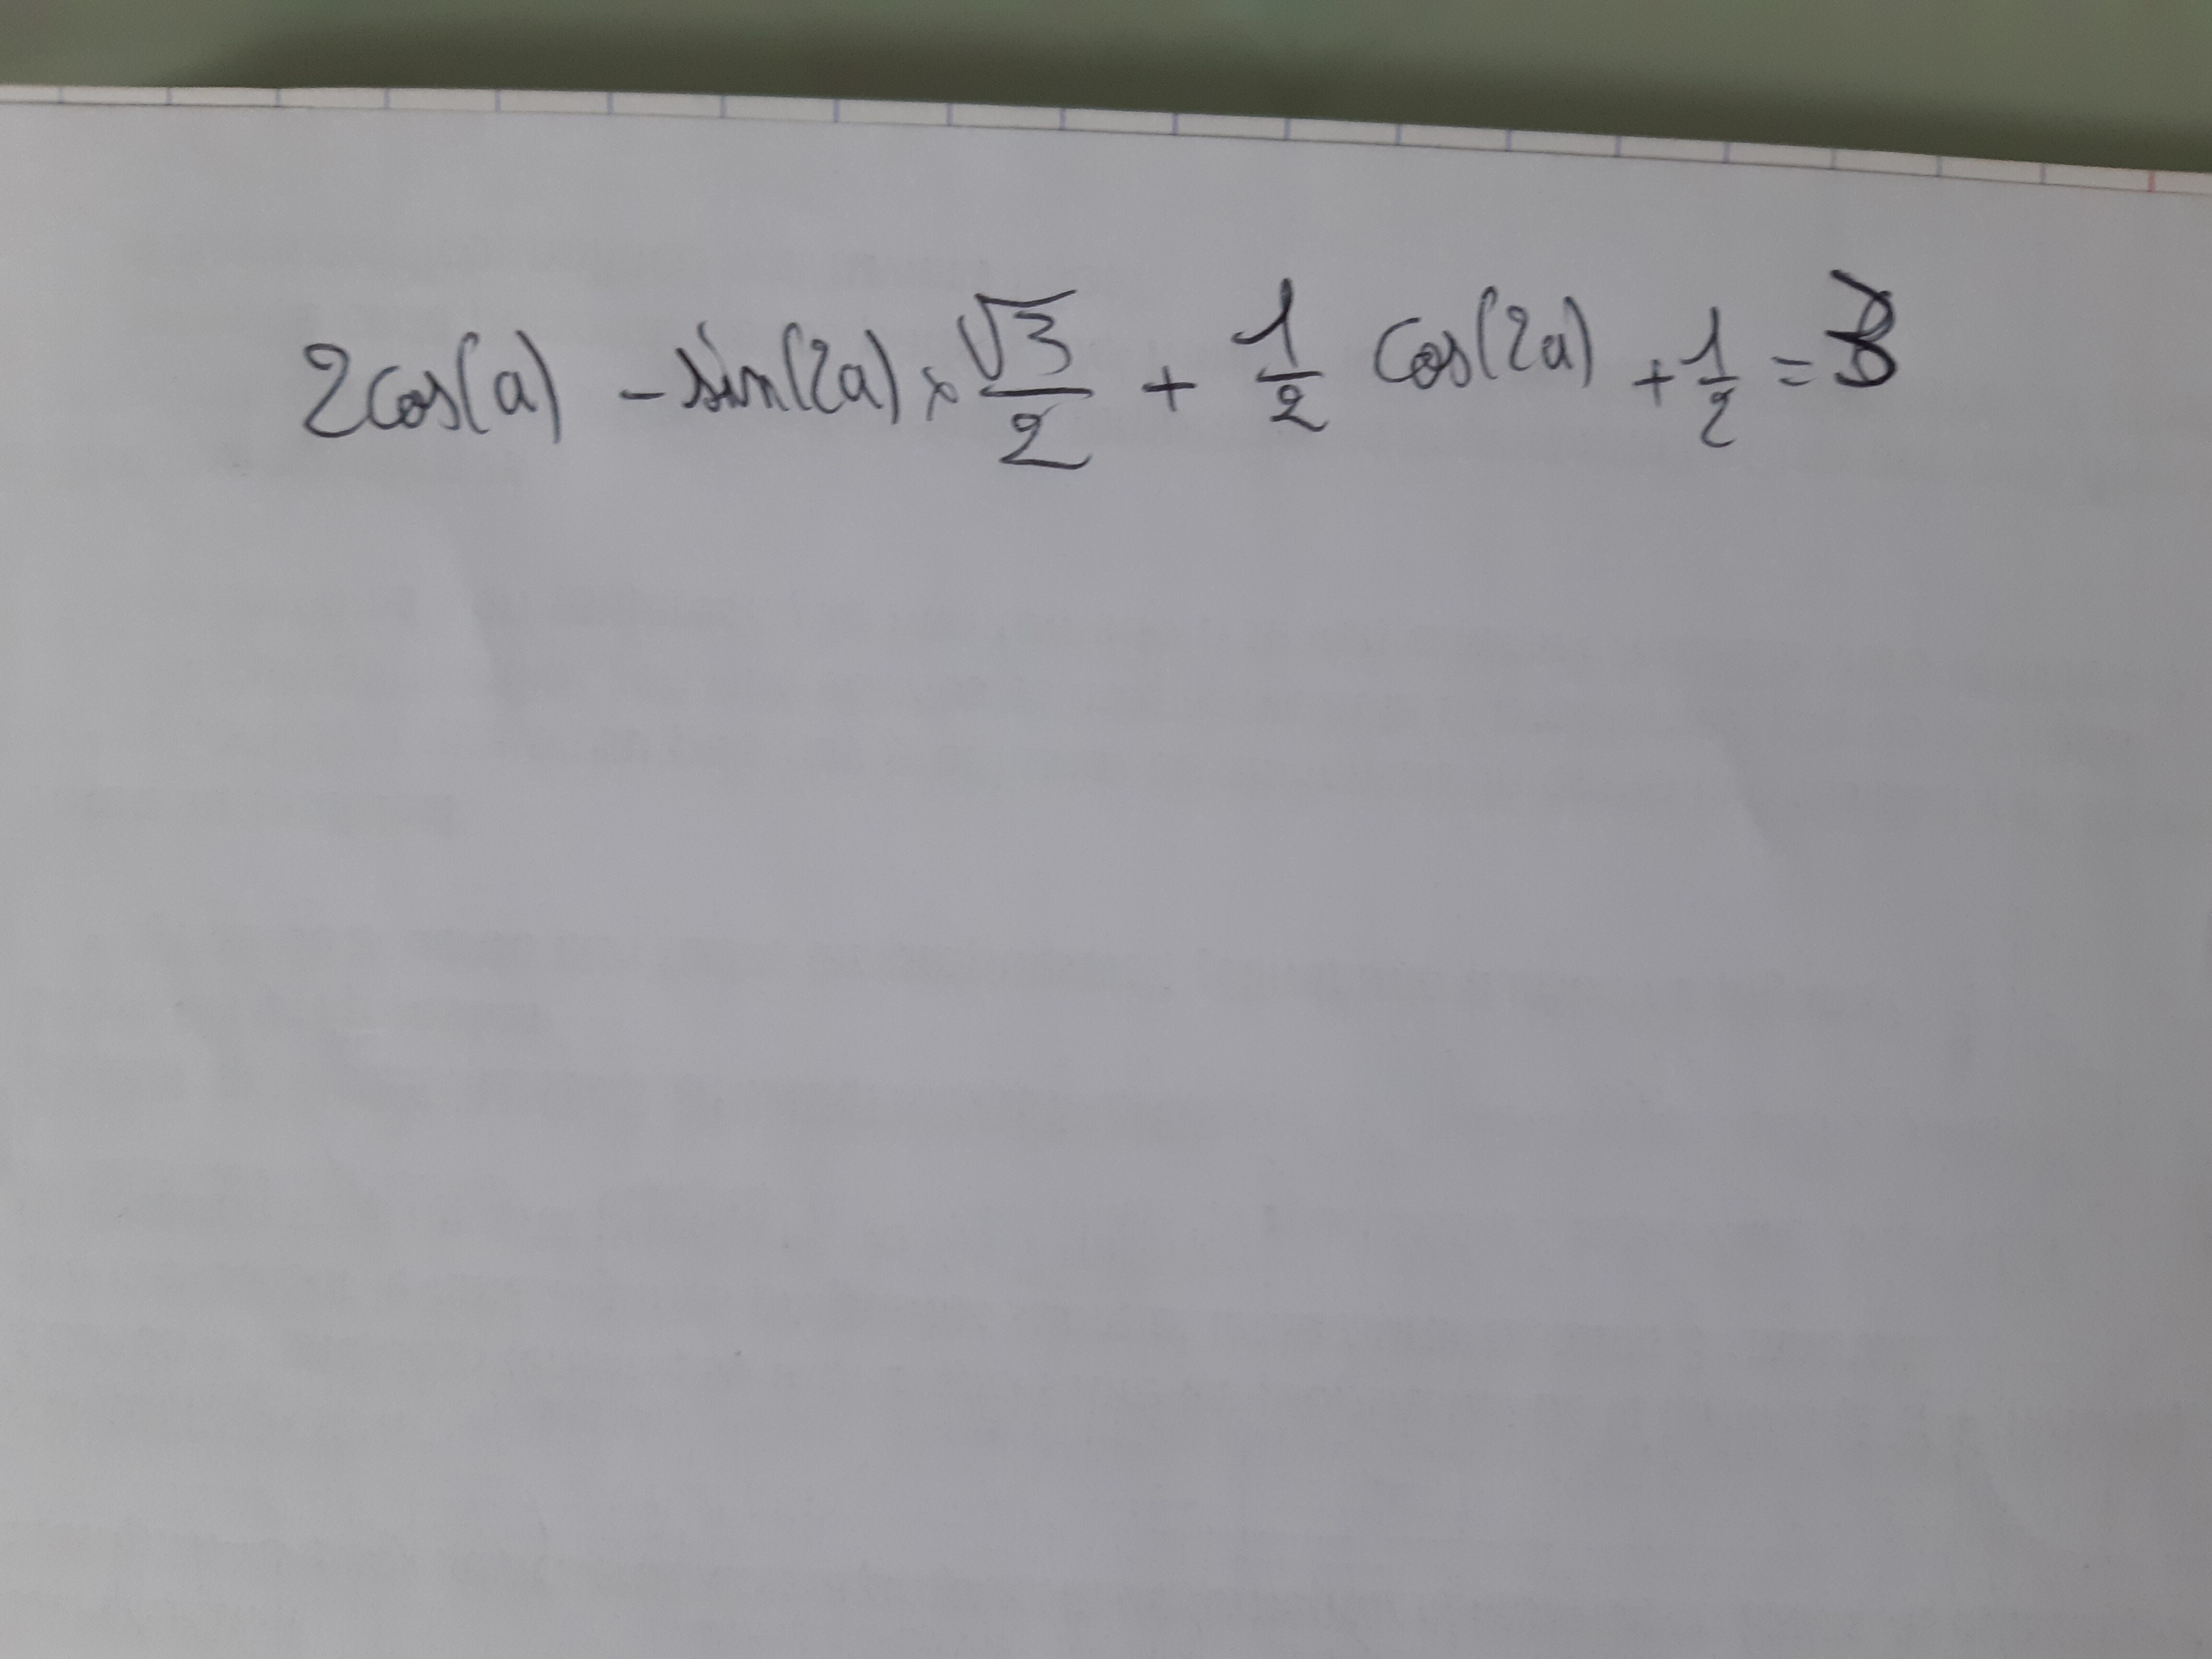 2cos(a) - sin(2a) × √3/2 + 1/2 cos(2a) + 1/2 =